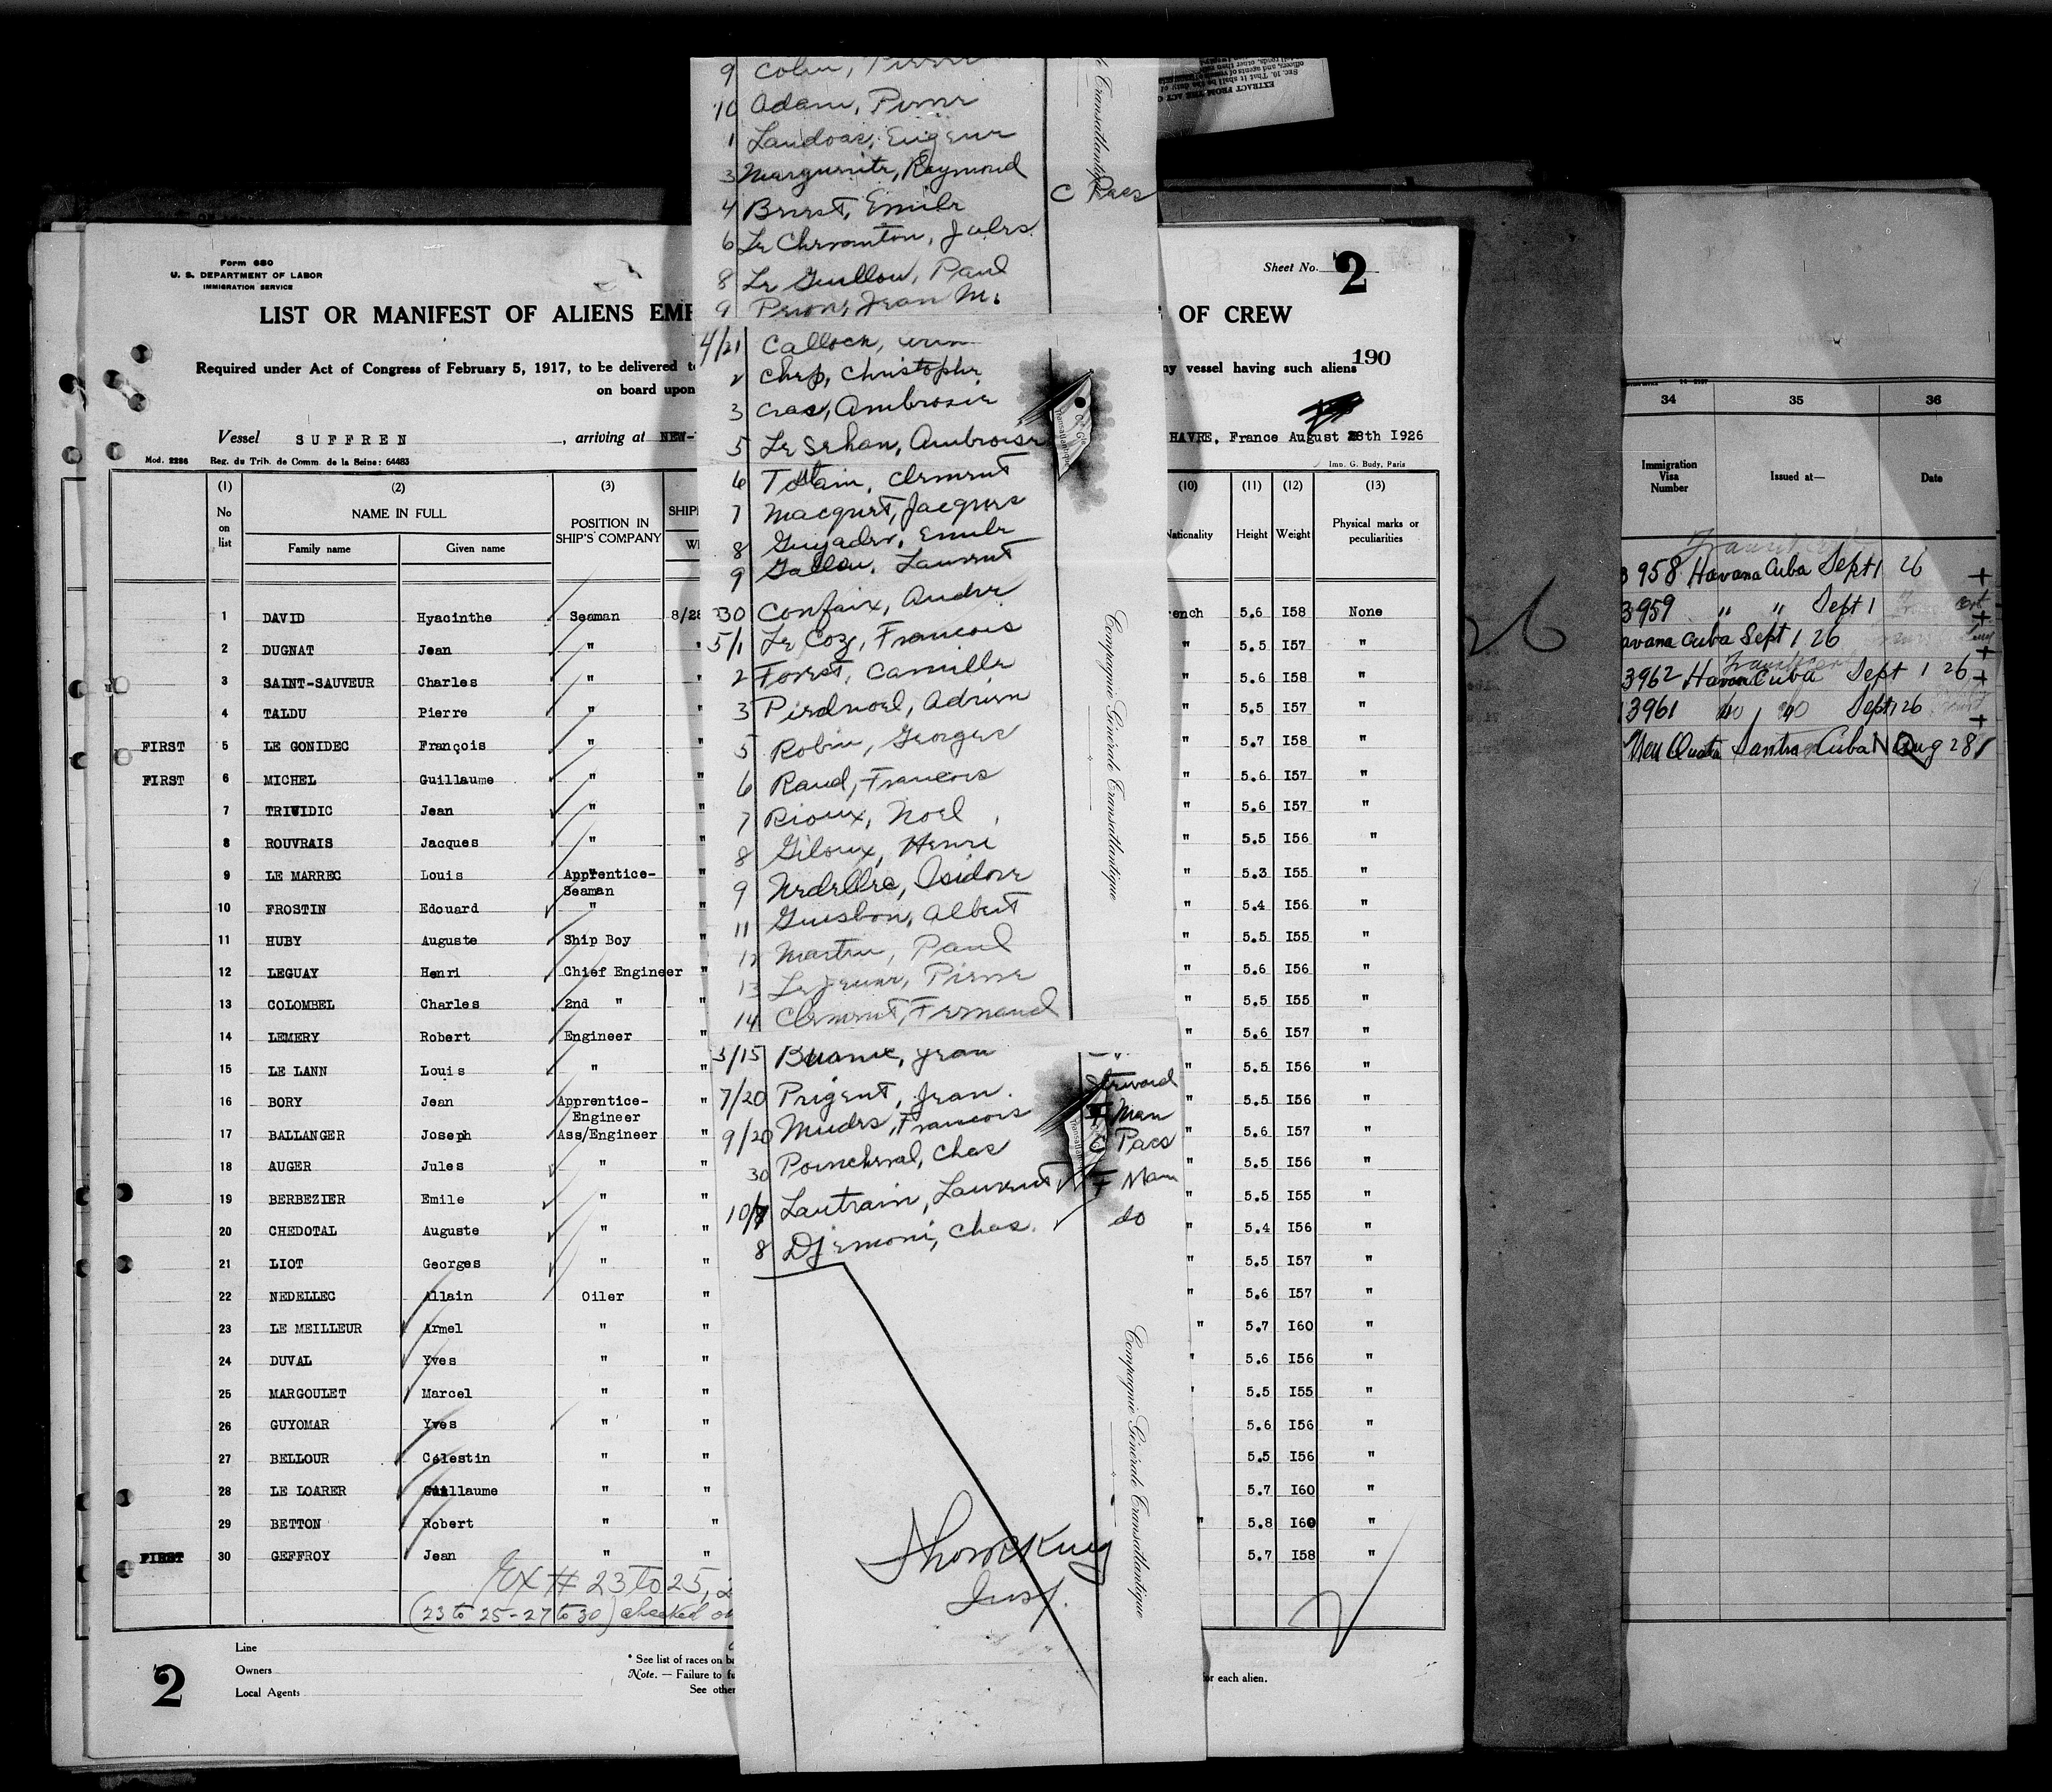 Form 680
U. S. DEPARTMENT OF LABOR
IMMIGRATION SERVICE
Sheet No. 2
LIST OR MANIFEST OF ALIENS EMP
OF CREW
190
Required under Act of Congress of February 5, 1917, to be delivered t
ny vessel having such aliens
on board upon
Vessel SUFFREN , arriving at NEW-
HAVRE, France August 28th 1926
Mod. 2286 Reg. du Trib. de Comm. de la Seine: 64483
Imp. G. Budy, Paris
(1) (2) (3)
No on list
NAME IN FULL
Family name Given name
POSITION IN SHIP'S COMPANY
SHIP
(10) (11) (12) (13)
Nationality Height Weight Physical marks or peculiarities
1 DAVID Hyacinthe Seaman 8/28 ench 5.6 I58 None
2 DUGNAT Jean " " " 5.5 I57 "
3 SAINT-SAUVEUR Charles " " " 5.6 I58 "
4 TALDU Pierre " " " 5.5 I57 "
FIRST 5 LE GONIDEC François " " " 5.7 I58 "
FIRST 6 MICHEL Guillaume " " " 5.6 I57 "
7 TRIVIDIC Jean " " " 5.6 I57 "
8 ROUVRAIS Jacques " " " 5.5 I56 "
9 LE MARREC Louis Apprentice-Seaman " " 5.3 I55 "
10 FROSTIN Edouard " " " 5.4 I56 "
11 HUBY Auguste Ship Boy " " 5.5 I55 "
12 LEGUAY Henri Chief Engineer " " 5.6 I56 "
13 COLOMBEL Charles 2nd " " " 5.5 I55 "
14 LEMERY Robert Engineer " " 5.6 I57 "
15 LE LANN Louis " " " 5.5 I56 "
16 BORY Jean Apprentice-Engineer " " 5.5 I56 "
17 BALLANGER Joseph Ass/Engineer " " 5.6 I57 "
18 AUGER Jules " " " 5.5 I56 "
19 BERBEZIER Emile " " " 5.5 I55 "
20 CHEDOTAL Auguste " " " 5.4 I56 "
21 LIOT Georges " " " 5.5 I57 "
22 NEDELLEC Allain Oiler " " 5.6 I57 "
23 LE MEILLEUR Armel " " " 5.7 I60 "
24 DUVAL Yves " " " 5.6 I56 "
25 MARGOULET Marcel " " ' 5.5 I55 "
26 GUYOMAR Yves " " 5.6 I56 "
27 BELLOUR Célestin " " 5.5 I56 "
28 LE LOARER Guillaume " " 5.7 I60 "
29 BETTON Robert " " " 5.8 I60 "
FIRST 30 GEFFROY Jean " " 5.7 I58 "
Ex # 23 to 25, 2
(23 to 25 - 27 to 30) checked on
Line
Owners
Local Agents
* See list of races on ba
Note. — Failure to fu
See other
for each alien.
2
9 Colin, Pierre
10 Adam, Pierre
1 Landoas, Eugene
3 Marguerite, Raymond C Paes
4 Brest, Emile
6 Le Chevanton, Jules
8 Le Guillou, Paul
9 Jean M.
4/21 Calloch,
2 Christophe
3 Cras, Ambrosie
5 Le Sehan, Ambroise
6 Tostain, Clement
7 Macquet, Jacques
8 Guyader, Emile
9 Gallou, Laurent
30 Confaix, Andre
5/1 Le Coz, Francois
2 Forest, Camille
3 Piednoel, Adrien
5 Robin, Georges
6 Raud, Francois
7 Rioux, Noel
8 Giloux, Henri
9 Nedellec, Isidore
11 Guesbon, Albert
12 Martin, Paul
13 Lejeune, Pierre
14 Clement, Fernand
3/15 Jean
7/20 Prigent, Jean Steward
9/20 Francois F Man
30 Poincheval, Chas C Paes
10/7 Lautrain, Laurent F Man
8 Djemoni, Chas. do
Insp.
Compagnie Générale Transatlantique
Compagnie Générale Transatlantique
e Transatlantique
Cie Gle Transatlantique
EXTRACT FROM THE ACT O
Sec. 10. That it shall be the duty of
26
34 35 36
Immigration Visa Number Issued at— Date
3958 Havana Cuba Sept 1 26 +
3959 " " Sept 1 +
avana Cuba Sept 1 26 +
3962 Havana Cuba Sept 1 26 +
3961 do do Sept 1 26 +
Non Quota Cuba Aug 28